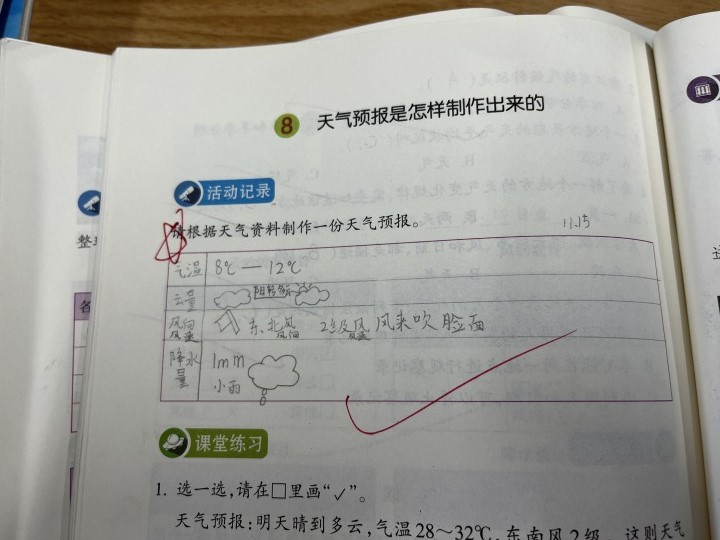 8 天气预报是怎样制作出来的
活动记录
请根据天气资料制作一份天气预报。 11.15
气温 8℃ — 12℃
云量 阴转多云
风向 风速 东北风 风向 2级风 风速 风来吹脸面
降水量 1mm 小雨
课堂练习
1. 选一选,请在□里画“✓”。
天气预报:明天晴到多云,气温28~32℃,东南风2级。这则天气